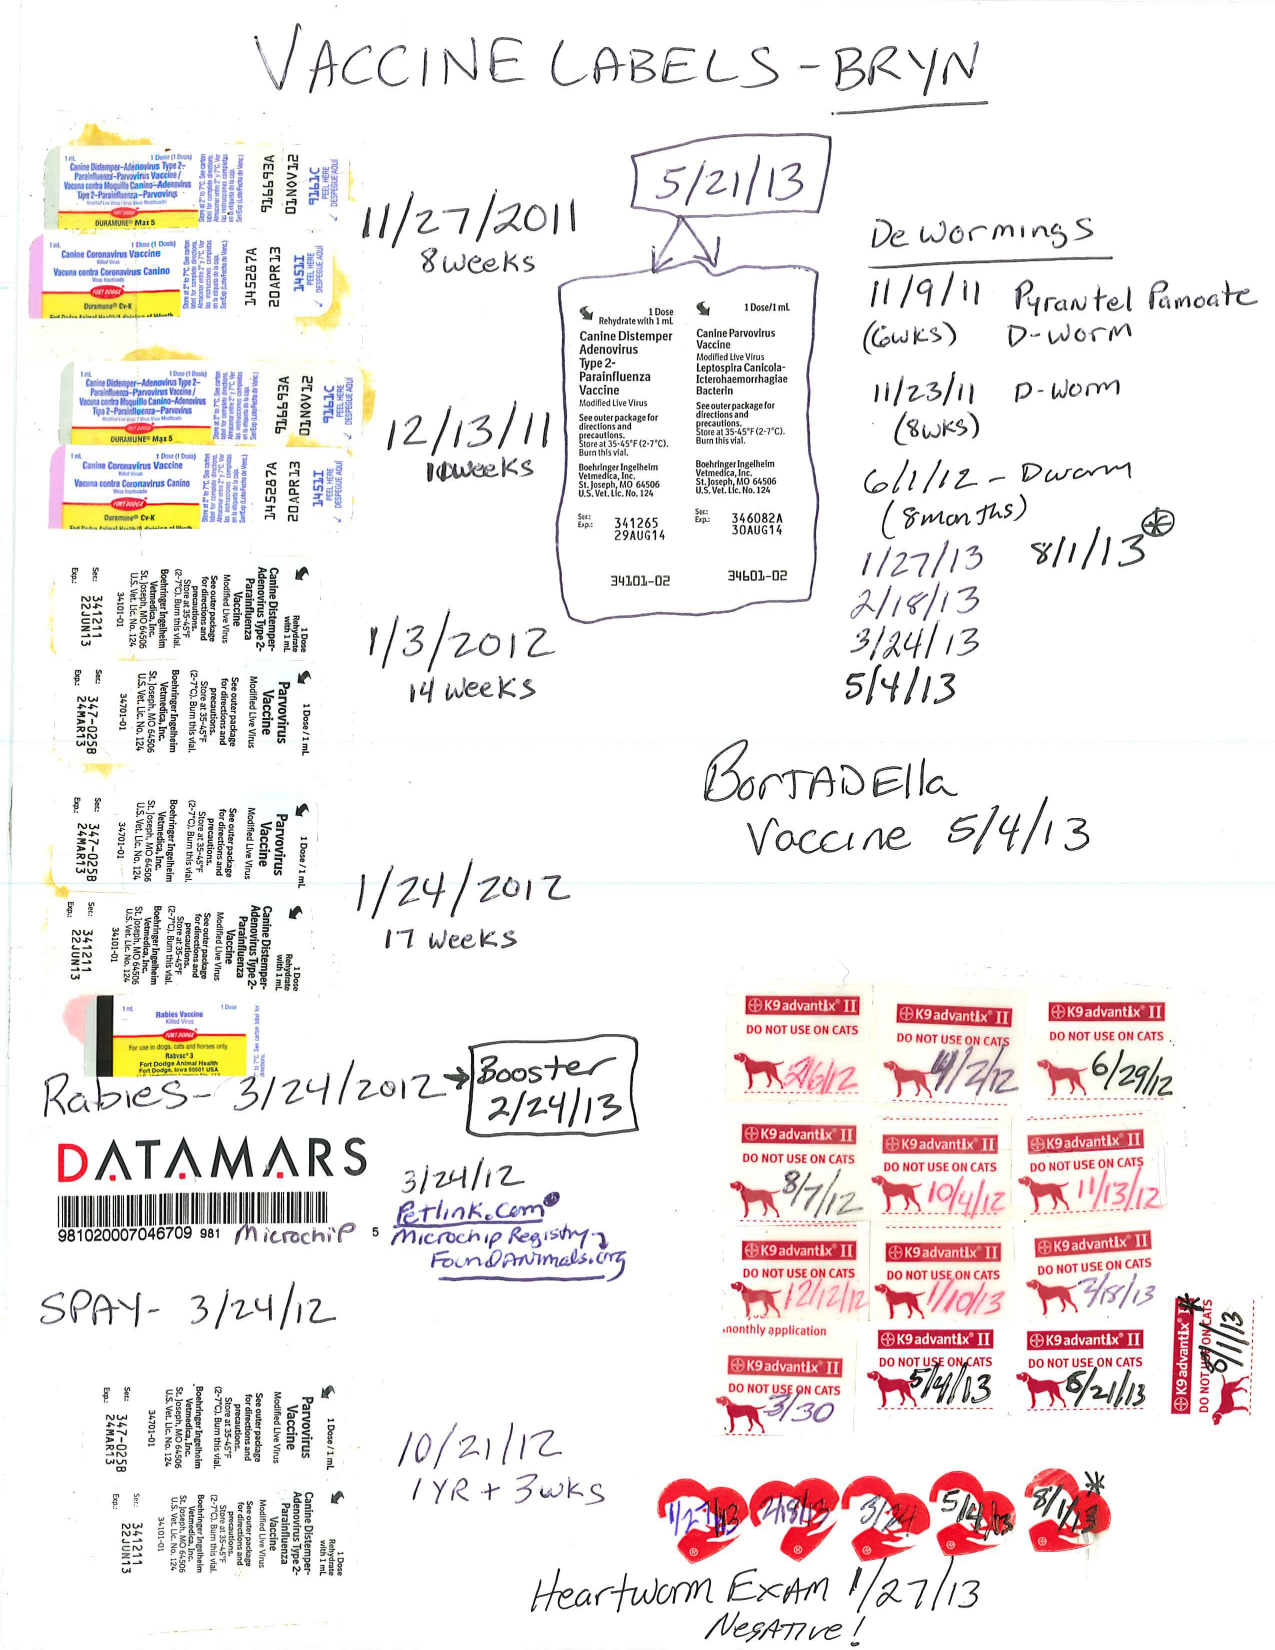 VACCINE LABELS - BRYN
1 mL 1 Dose (1 Dosis)
Canine Distemper-Adenovirus Type 2-
Parainfluenza-Parvovirus Vaccine/
Vacuna contra Moquillo Canino-Adenovirus
Tipo 2-Parainfluenza-Parvovirus
Modified Live Virus / Virus Vivo Modificado
FORT DODGE
DURAMUNE® Max 5
916663A
01NOV12
1616C
PEEL HERE
DESPEGUE AQUI
1 mL 1 Dose (1 Dosis)
Canine Coronavirus Vaccine
Killed Virus
Vacuna contra Coronavirus Canino
Virus Inactivado
FORT DODGE
Duramune® Cv-K
Fort Dodge Animal Health/A division of Wyeth
145287A
20APR13
1451I
PEEL HERE
DESPEGUE AQUI
11/27/2011
8 weeks
1 mL 1 Dose (1 Dosis)
Canine Distemper-Adenovirus Type 2-
Parainfluenza-Parvovirus Vaccine/
Vacuna contra Moquillo Canino-Adenovirus
Tipo 2-Parainfluenza-Parvovirus
Modified Live Virus / Virus Vivo Modificado
FORT DODGE
DURAMUNE® Max 5
916663A
01NOV12
1616C
PEEL HERE
DESPEGUE AQUI
1 mL 1 Dose (1 Dosis)
Canine Coronavirus Vaccine
Killed Virus
Vacuna contra Coronavirus Canino
Virus Inactivado
FORT DODGE
Duramune® Cv-K
Fort Dodge Animal Health/A division of Wyeth
145287A
20APR13
1451I
PEEL HERE
DESPEGUE AQUI
12/13/11
10 weeks
1 Dose
Rehydrate
with 1 mL
Canine Distemper-
Adenovirus Type 2-
Parainfluenza
Vaccine
Modified Live Virus
See outer package
for directions and
precautions.
Store at 35-45°F
(2-7°C). Burn this vial.
Boehringer Ingelheim
Vetmedica, Inc.
St. Joseph, MO 64506
U.S. Vet. Lic. No. 124
34101-01
Ser: 341211
Exp.: 22JUN13
1 Dose/1 mL
Parvovirus
Vaccine
Modified Live Virus
See outer package
for directions and
precautions.
Store at 35-45°F
(2-7°C). Burn this vial.
Boehringer Ingelheim
Vetmedica, Inc.
St. Joseph, MO 64506
U.S. Vet. Lic. No. 124
34701-01
Ser: 347-025B
Exp.: 24MAR13
1/3/2012
14 weeks
1 Dose/1 mL
Parvovirus
Vaccine
Modified Live Virus
See outer package
for directions and
precautions.
Store at 35-45°F
(2-7°C). Burn this vial.
Boehringer Ingelheim
Vetmedica, Inc.
St. Joseph, MO 64506
U.S. Vet. Lic. No. 124
34701-01
Ser: 347-025B
Exp.: 24MAR13
1 Dose
Rehydrate
with 1 mL
Canine Distemper-
Adenovirus Type 2-
Parainfluenza
Vaccine
Modified Live Virus
See outer package
for directions and
precautions.
Store at 35-45°F
(2-7°C). Burn this vial.
Boehringer Ingelheim
Vetmedica, Inc.
St. Joseph, MO 64506
U.S. Vet. Lic. No. 124
34101-01
Ser: 341211
Exp.: 22JUN13
1/24/2012
17 weeks
1 mL 1 Dose
Rabies Vaccine
Killed Virus
FORT DODGE
For use in dogs, cats and horses only.
Rabvac® 3
Fort Dodge Animal Health
Fort Dodge, Iowa 50501 USA
Rabies- 3/24/2012 → Booster
2/24/13
DATAMARS
981020007046709 981 Microchip 5
3/24/12
Petlink.com
Microchip Registry-
FoundAnimals.org
SPAY- 3/24/12
1 Dose/1 mL
Parvovirus
Vaccine
Modified Live Virus
See outer package
for directions and
precautions.
Store at 35-45°F
(2-7°C). Burn this vial.
Boehringer Ingelheim
Vetmedica, Inc.
St. Joseph, MO 64506
U.S. Vet. Lic. No. 124
34701-01
Ser: 347-025B
Exp.: 24MAR13
1 Dose
Rehydrate
with 1 mL
Canine Distemper-
Adenovirus Type 2-
Parainfluenza
Vaccine
Modified Live Virus
See outer package
for directions and
precautions.
Store at 35-45°F
(2-7°C). Burn this vial.
Boehringer Ingelheim
Vetmedica, Inc.
St. Joseph, MO 64506
U.S. Vet. Lic. No. 124
34101-01
Ser: 341211
Exp.: 22JUN13
10/21/12
1 YR + 3 wks
5/21/13
1 Dose
Rehydrate with 1 mL
Canine Distemper
Adenovirus
Type 2-
Parainfluenza
Vaccine
Modified Live Virus
See outer package for
directions and
precautions.
Store at 35-45°F (2-7°C).
Burn this vial.
Boehringer Ingelheim
Vetmedica, Inc.
St. Joseph, MO 64506
U.S. Vet. Lic. No. 124
Ser: 341265
Exp.: 29AUG14
34101-02
1 Dose/1 mL
Canine Parvovirus
Vaccine
Modified Live Virus
Leptospira Canicola-
Icterohaemorrhagiae
Bacterin
See outer package for
directions and
precautions.
Store at 35-45°F (2-7°C).
Burn this vial.
Boehringer Ingelheim
Vetmedica, Inc.
St. Joseph, MO 64506
U.S. Vet. Lic. No. 124
Ser: 346082A
Exp.: 30AUG14
34601-02
DeWormings
11/9/11 Pyrantel Pamoate
(6wks) D-Worm
11/23/11 D-Worm
(8wks)
6/1/12 - Dworm
(8months)
1/27/13 8/1/13 *
2/18/13
3/24/13
5/4/13
BorTADElla
Vaccine 5/4/13
K9 advantix® II
DO NOT USE ON CATS
2/6/12
K9 advantix® II
DO NOT USE ON CATS
4/2/12
K9 advantix® II
DO NOT USE ON CATS
6/29/12
K9 advantix® II
DO NOT USE ON CATS
8/7/12
K9 advantix® II
DO NOT USE ON CATS
10/4/12
K9 advantix® II
DO NOT USE ON CATS
11/13/12
K9 advantix® II
DO NOT USE ON CATS
12/12/12
K9 advantix® II
DO NOT USE ON CATS
1/10/13
K9 advantix® II
DO NOT USE ON CATS
2/18/13
monthly application
K9 advantix® II
DO NOT USE ON CATS
3/30
K9 advantix® II
DO NOT USE ON CATS
5/4/13
K9 advantix® II
DO NOT USE ON CATS
6/21/13
K9 advantix® II *
DO NOT USE ON CATS
8/1/13
1/27/13 2/18/13 3/24 5/4/13 8/1/13 *
Heartworm EXAM 1/27/13
Negative!